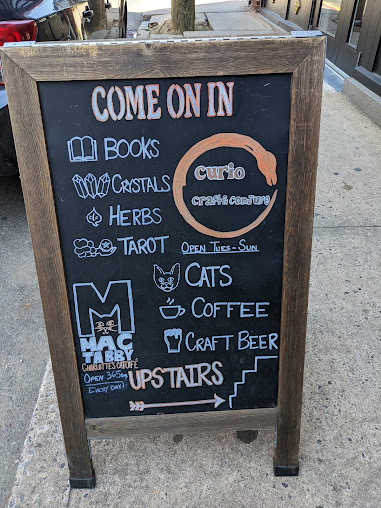 COME ON IN
BOOKS
CRYSTALS
HERBS
TAROT
curio
craft & conjure
OPEN TUES-SUN
CATS
COFFEE
CRAFT BEER
M
MAC
TABBY
CHARLOTTE'S CAT CAFÉ
OPEN 365
EVERY DAY!
UPSTAIRS